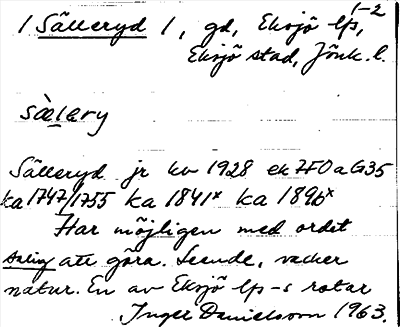 1-2
/ Sälleryd /, gd, Eksjö lfs,
Eksjö stad, Jönk. l.
sæ̀lary
Sälleryd jr kv 1928 ek 7F0a G35
ka 1747/1755 ka 1841x ka 1896x
Har möjligen med ordet
salig att göra. Leende, vacker
natur. En av Eksjö lfs-s rotar
Inger Danielsson 1963.